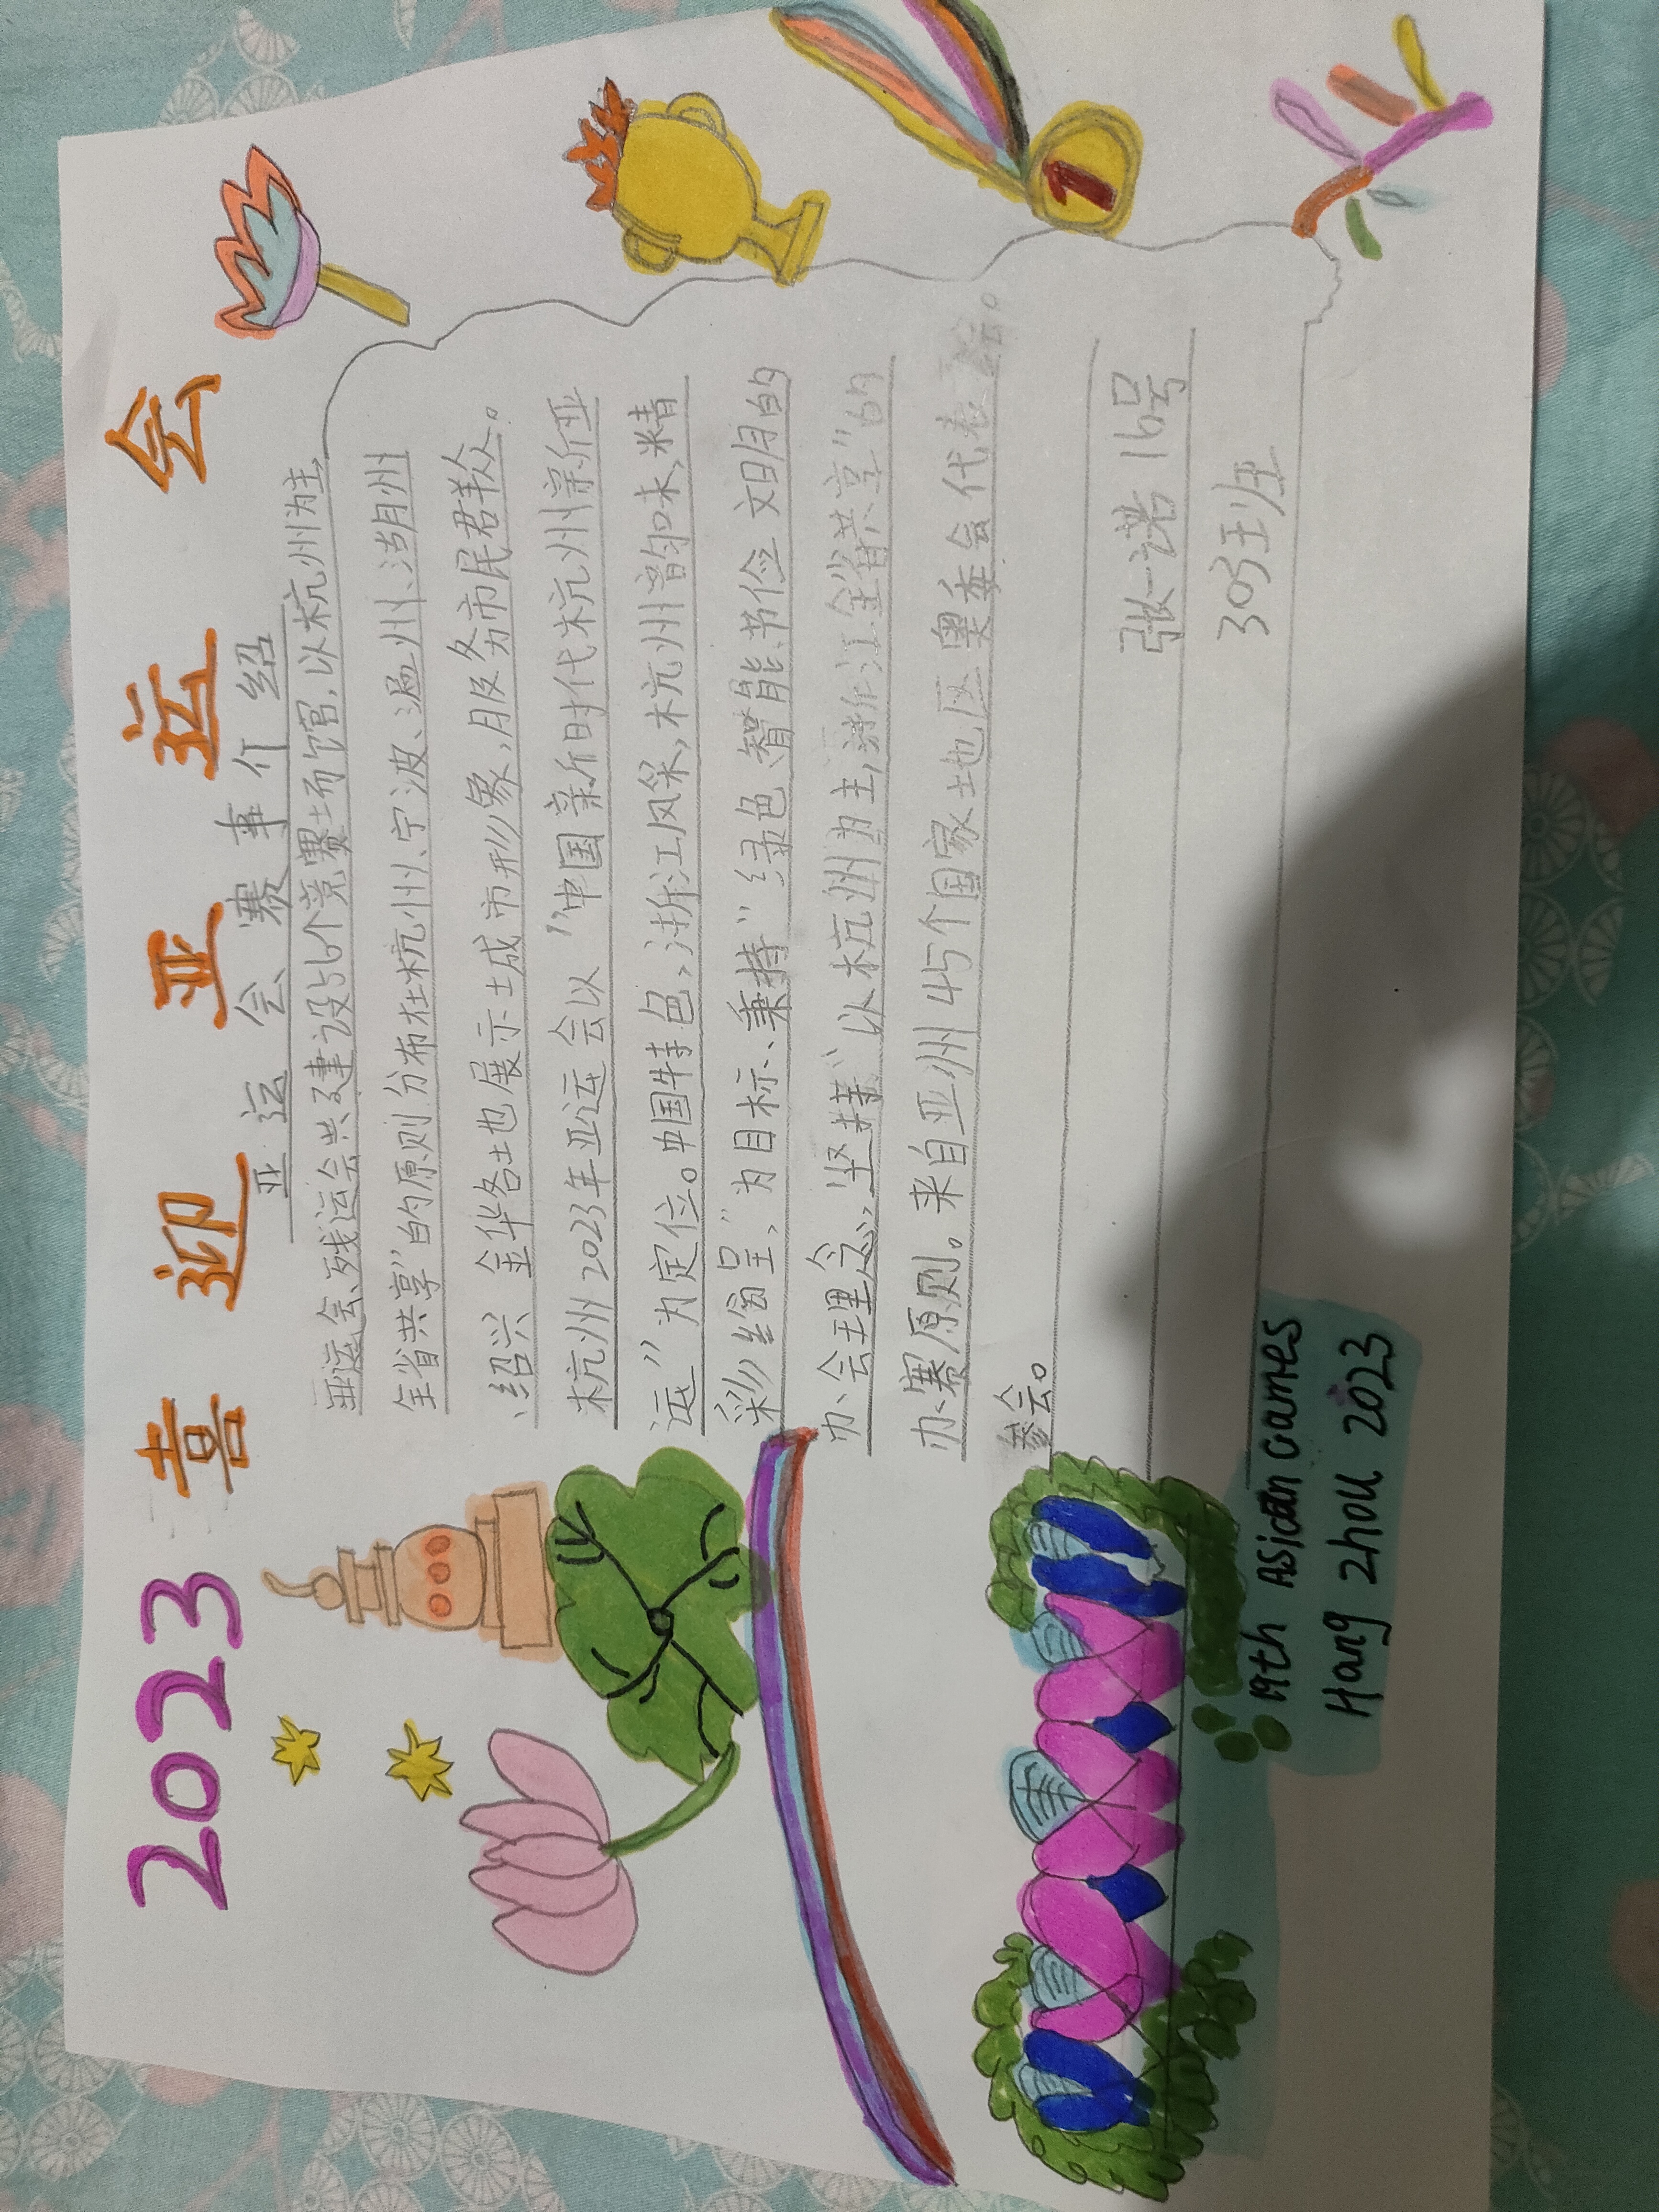 2023 喜迎亚运会
亚运会赛事介绍
亚运会、残运会共建设56个竞赛场馆,以杭州为主,
全省共享"的原则分布在杭州、宁波、温州、湖州
、绍兴 金华各地展示城市形象,服务市民群众。
杭州2023年亚运会以"中国新时代杭州新亚
运"为定位。中国特色,浙江风采,杭州韵味,精
彩纷呈,"为目标、秉持"绿色、智能、节俭、文明的
办会理念,坚持"以杭州为主,浙江全省共享"的
办赛原则。来自亚洲45个国家地区奥委会代表
参会。
张一诺 16号
305班
19th Asian Games
Hang Zhou 2023
1